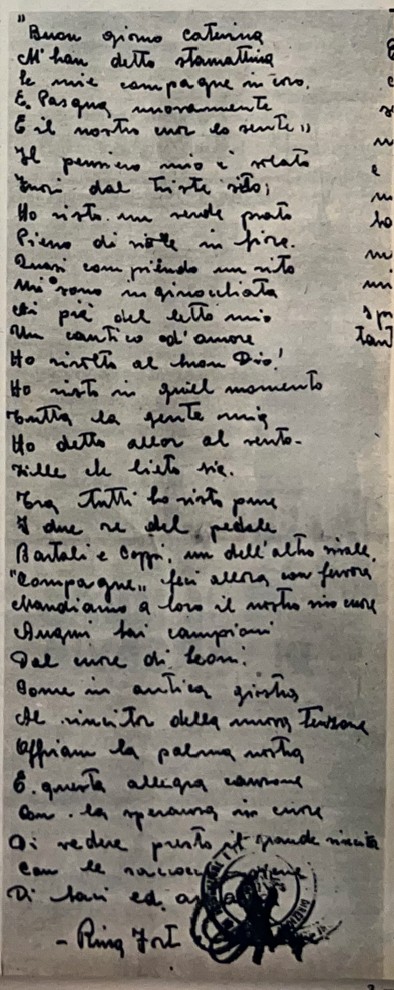 "Buon giorno Caterina
M'han detto stamattina
le mie compagne in coro.
È Pasqua nuovamente
E il nostro cuor lo sente"
Il pensiero mio è volato
Fuori dal triste sito;
Ho visto un verde prato
Pieno di viole in fiore.
Quasi compiendo un rito
Mi sono inginocchiata
Ai piè del letto mio
Un cantico d'amore
Ho rivolto al buon Dio!
Ho visto in quell momento
Tutta la gente mia
Ho detto allor al vento-
che lieto sia.
Tra tutti ho visto pure
I due re del pedale
Bartali e Coppi, un dell'altro rivale,
"Compagne" feci allora con fervore
Mandiamo a loro il nostro cuore
Auguri campioni
Dal cuore di leoni.
Come in antica giostra
Al vincitor della nuova tenzone
Offriam la palma nostra
E questa allegra canzone
Con la speranza in cuore
Di vedere presto il grande
Con le
Di baci ed
- Rina Fort